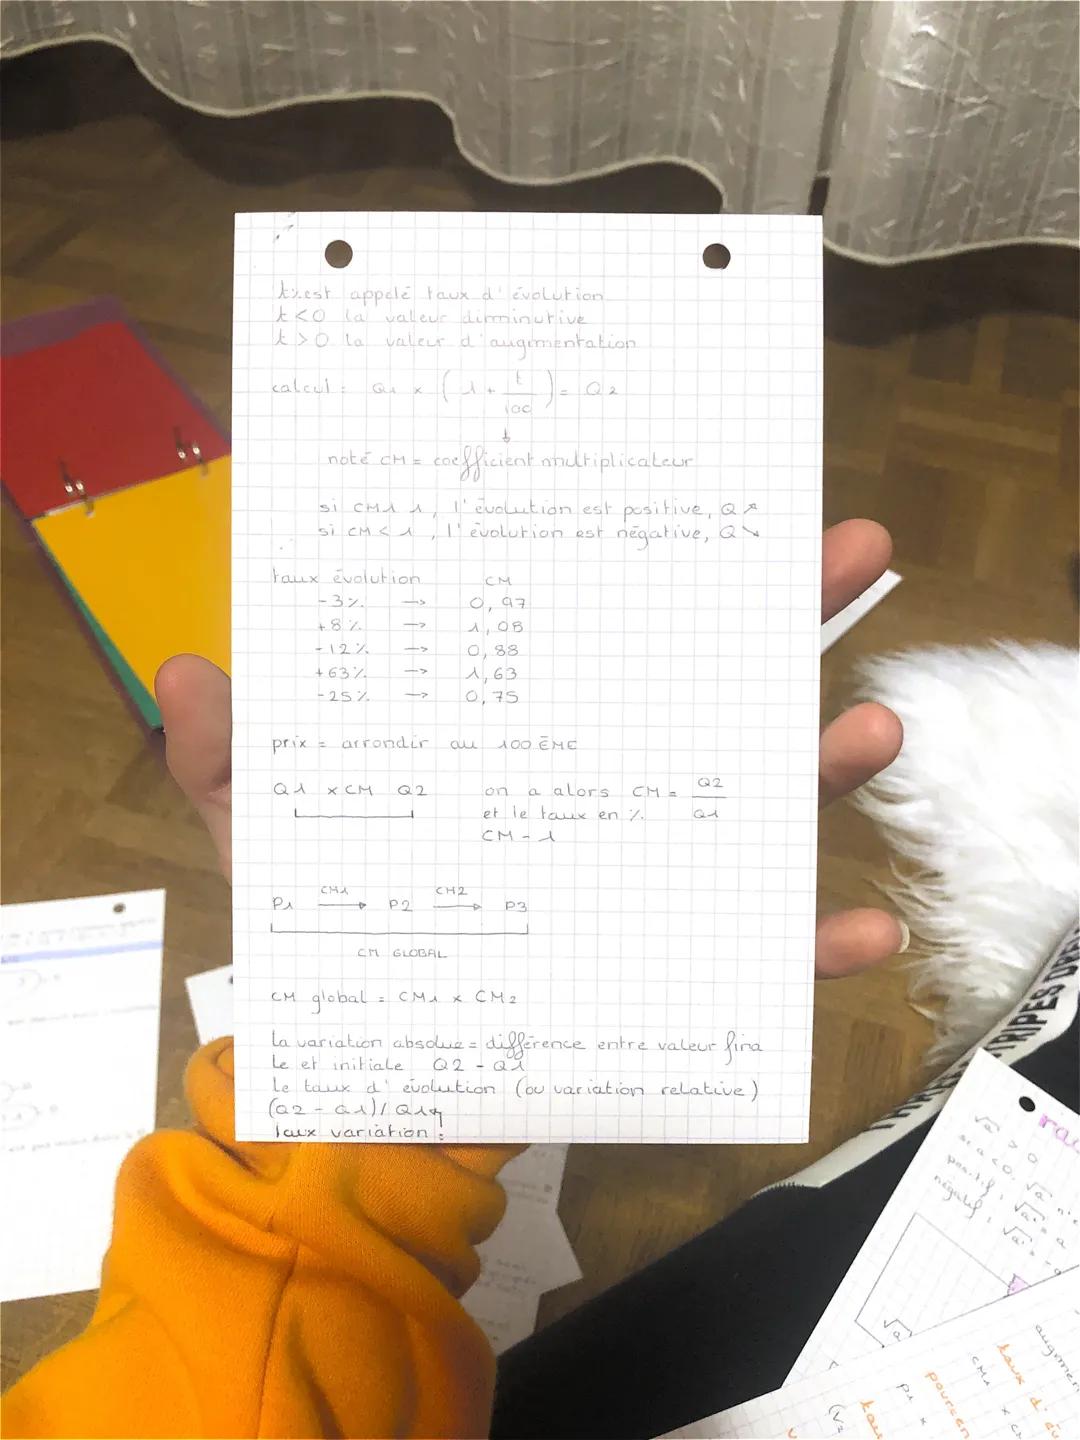 t% est appelé taux d'évolution
t<0 la valeur diminutive
t>0 la valeur d'augmentation
calcul : Q1 x (1 + t/100) = Q2
↓
noté CM = coefficient multiplicateur
si CM1 1, l'évolution est positive, Q↗
si CM<1, l'évolution est négative, Q↘
taux évolution CM
-3% → 0,97
+8% → 1,08
-12% → 0,88
+63% → 1,63
-25% → 0,75
prix = arrondir au 100 ÈME
Q1 x CM Q2 on a alors CM = Q2/Q1
et le taux en %
CM-1
P1 CM1→ P2 CM2→ P3
CM GLOBAL
CM global = CM1 x CM2
La variation absolue = différence entre valeur fina
le et initiale Q2 - Q1
Le taux d'évolution (ou variation relative)
(Q2 - Q1)/Q1
Taux variation :
TRIPES DRE
√a ≥ 0
a<0, √a
positif, √a² = a
négatif, √a² = -a
√a
augmen
taux d'
CM1 x
pourcen
P1 x
(V2